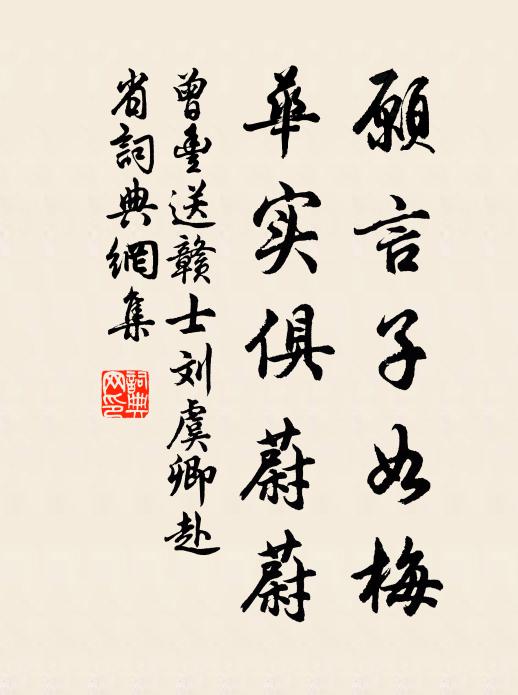 願言子如梅
華实俱蔚蔚
曾豊送贛士刘虞卿赴
省詞典網集
詞典網印